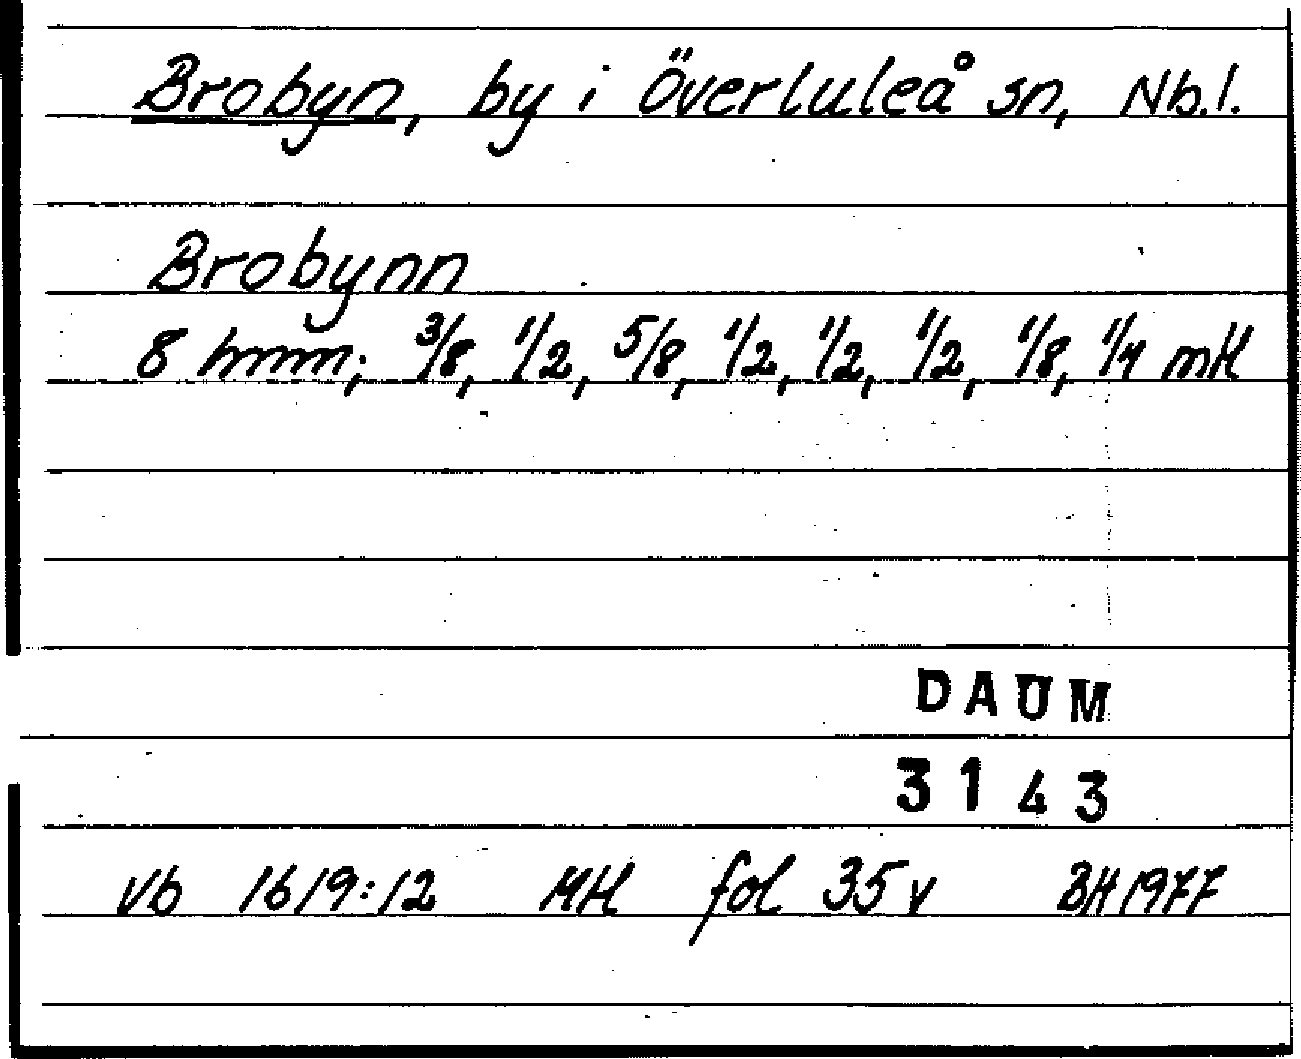 Brobyn, by i Överluleå sn, Nb.l.
Brobynn
8 hmm; 3/8, 1/2, 5/8, 1/2, 1/2, 1/2, 1/8, 1/4 mtl
DAUM
3143
Vb 1619:12 MH fol 35 v BH 1977